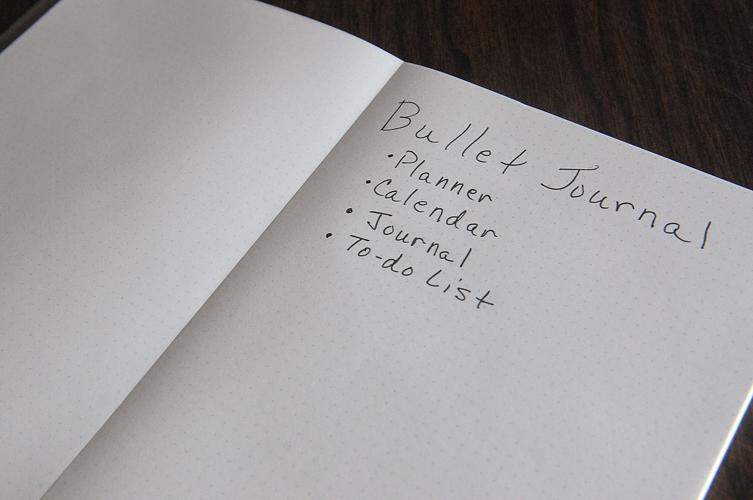 Bullet Journal
• Planner
• Calendar
• Journal
• To-do List